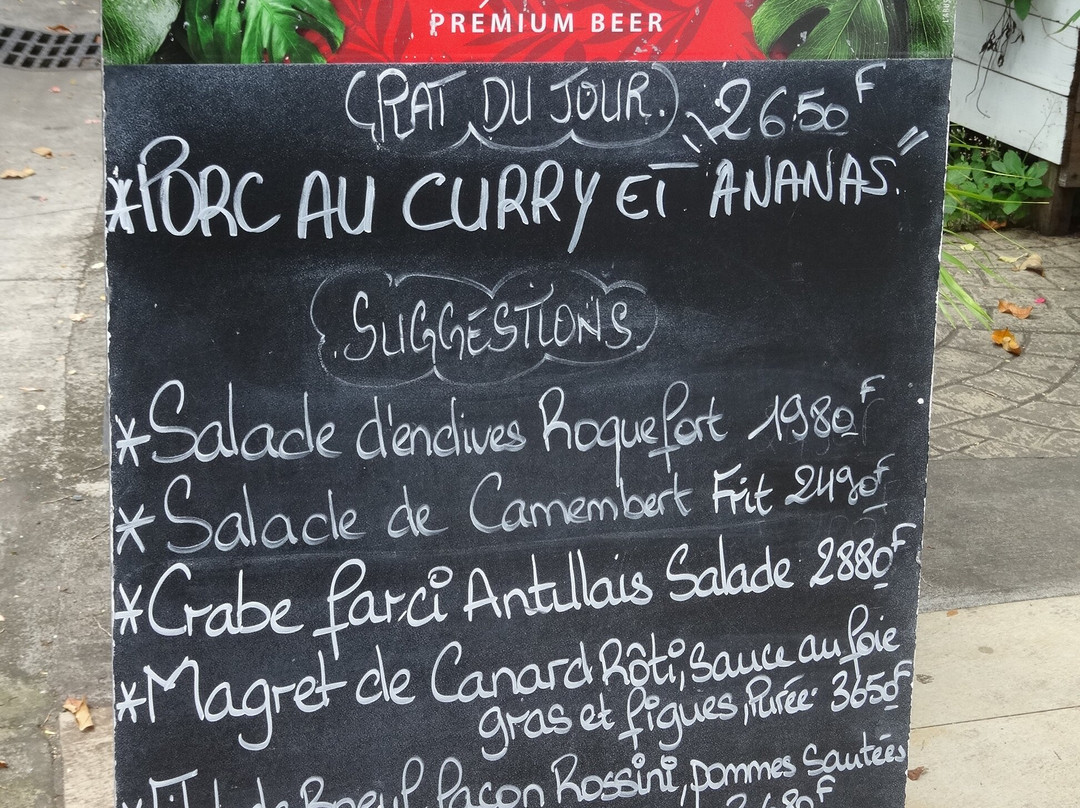 PREMIUM BEER
PLAT DU JOUR. 2650F
*PORC AU CURRY ET "ANANAS."
SUGGESTIONS
*Salade d'endives Roquefort 1980F
*Salade de Camembert Frit 2490F
*Crabe farci Antillais Salade 2880F
*Magret de Canard Rôti, sauce au foie
gras et figues, Purée 3650F
de Boeuf façon Rossini, pommes sautées